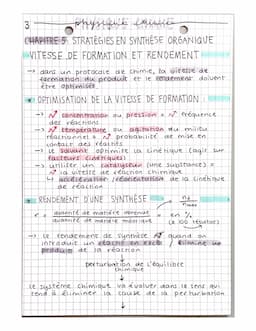 3 physique chimie
CHAPITRE 5 STRATÉGIES EN SYNTHÈSE ORGANIQUE
VITESSE DE FORMATION ET RENDEMENT
→ dans un protocole de chimie, la vitesse de
formation du produit et le rendement doivent
être optimisés.
OPTIMISATION DE LA VITESSE DE FORMATION :
→ ↗ concentration ou pression = ↗ fréquence
des réactions
→ ↗ température ou agitation du milieu
réactionnel = ↗ probabilité de mise en
contact des réactifs
→ le solvant optimise la cinétique (agit sur
facteurs cinétiques)
→ utiliser un catalyseur (une substance) =
↗ la vitesse de réaction chimique
↳ accélération / réorientation de la cinétique
de réaction
RENDEMENT D'UNE SYNTHÈSE
r = quantité de matière obtenue
quantité de matière théorique
= nf
nmax
= en %
(x 100 résultat)
→ le rendement de synthèse ↗ quand on
introduit un réactif en excès / élimine un
produit de la réaction
↓
perturbation de l'équilibre
chimique
↓
le système chimique va évoluer dans le sens qui
tend à éliminer la cause de la perturbation
↓